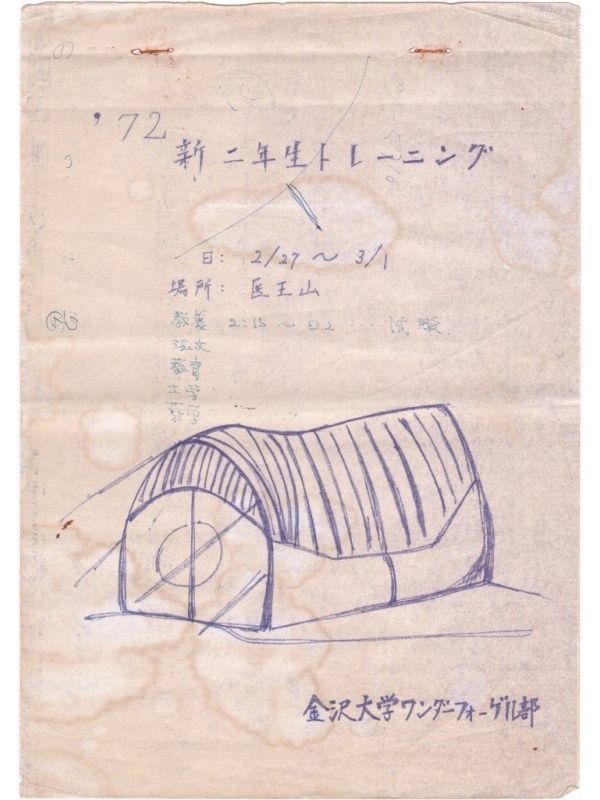 '72
新二年生トレーニング
日: 2/27～3/1
場所: 医王山
教養 2:15～ 試験
法文
教育
工学
薬学
金沢大学ワンダーフォーゲル部